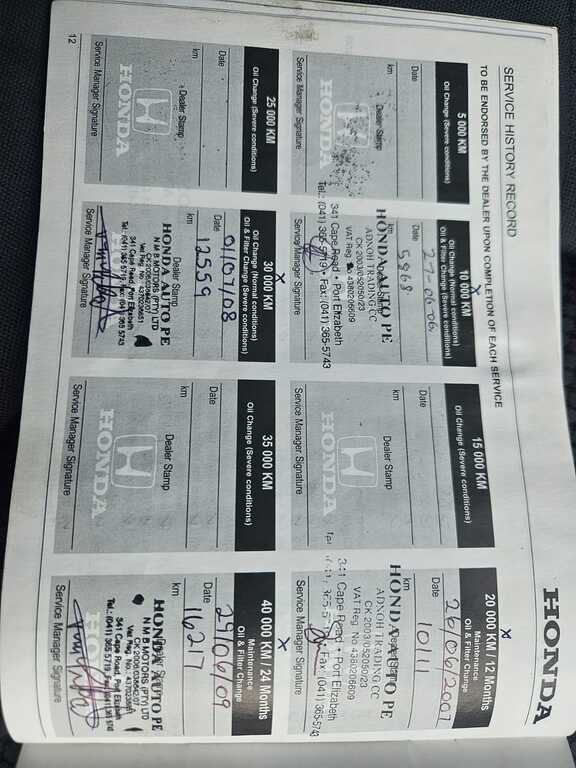 HONDA
SERVICE HISTORY RECORD
TO BE ENDORSED BY THE DEALER UPON COMPLETION OF EACH SERVICE
5 000 KM
Oil Change (Severe conditions)
Date
km
Dealer Stamp
HONDA
Service Manager Signature
10 000 KM
X
Oil Change (Normal conditions)
Oil & Filter Change (Severe conditions)
Date 27-06-06
km 5868
HONDA AUTO PE
ADNOH TRADING CC
CK 2003/052050/23
VAT Reg. No 4380206609
341 Cape Road • Port Elizabeth
Tel.: (041) 365-5719 • Fax: (041) 365-5743
Service Manager Signature
15 000 KM
Oil Change (Severe conditions)
Date
km
Dealer Stamp
HONDA
Service Manager Signature
20 000 KM / 12 Months
X
Maintenance
Oil & Filter Change
Date 26/06/2007
km 10111
HONDA AUTO PE
ADNOH TRADING CC
CK 2003/052050/23
VAT Reg. No 4380206609
341 Cape Road • Port Elizabeth
Fax: (041) 365-5743
Service Manager Signature
25 000 KM
Oil Change (Severe conditions)
Date
km
Dealer Stamp
HONDA
Service Manager Signature
30 000 KM
X
Oil Change (Normal conditions)
Oil & Filter Change (Severe conditions)
Date 01/07/08
km 12559
Dealer Stamp
HONDA AUTO PE
N M B MOTORS (PTY) LTD
341 Cape Road, Port Elizabeth
Tel.: (041) 365 5719, Fax: (041) 365 5743
Service Manager Signature
35 000 KM
Oil Change (Severe conditions)
Date
km
Dealer Stamp
HONDA
Service Manager Signature
40 000 KM / 24 Months
X
Maintenance
Oil & Filter Change
Date 29/06/09
km 16217
HONDA AUTO PE
N M B MOTORS (PTY) LTD
341 Cape Road, Port Elizabeth
Service Manager Signature
12